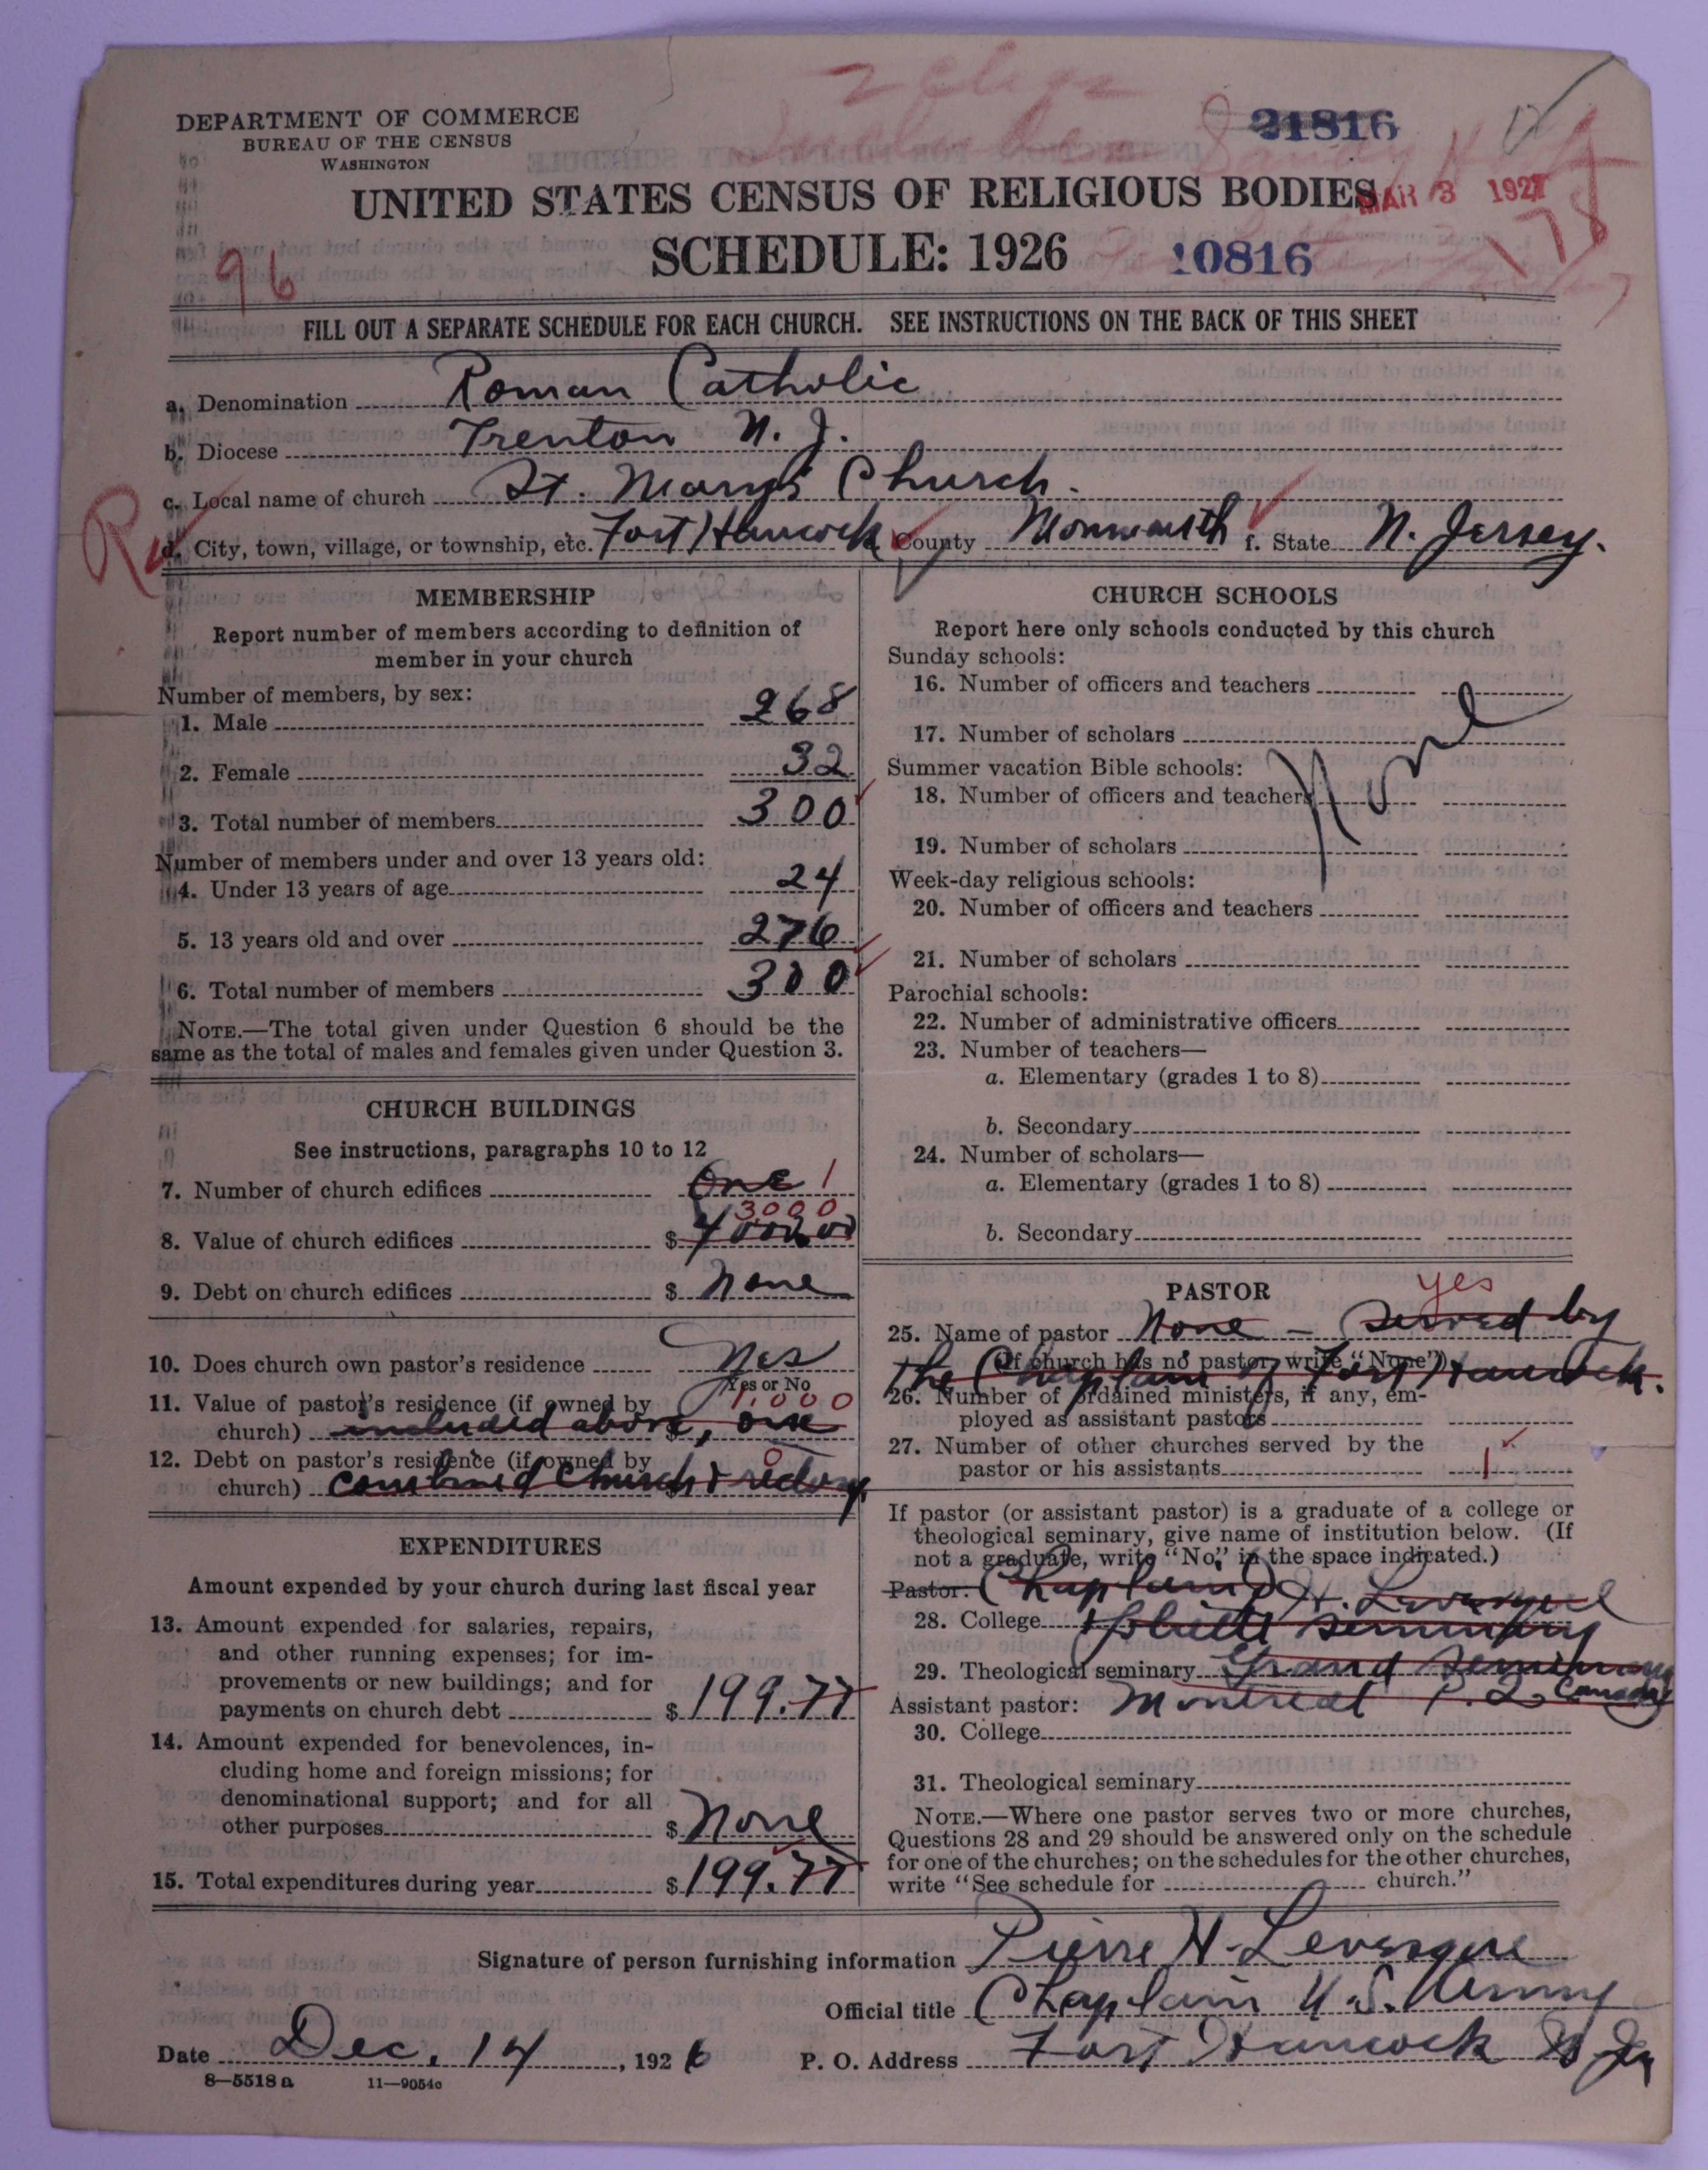 2 chgs
21816
DEPARTMENT OF COMMERCE
BUREAU OF THE CENSUS
WASHINGTON
UNITED STATES CENSUS OF RELIGIOUS BODIES
MAR 3 1927
178
SCHEDULE: 1926
10816
96
FILL OUT A SEPARATE SCHEDULE FOR EACH CHURCH. SEE INSTRUCTIONS ON THE BACK OF THIS SHEET
a. Denomination Roman Catholic
b. Diocese Trenton N. J.
c. Local name of church St. Mary's Church.
d. City, town, village, or township, etc. Fort Hancock County Monmouth f. State N. Jersey.
MEMBERSHIP
Report number of members according to definition of
member in your church
Number of members, by sex:
1. Male 268
2. Female 32
3. Total number of members 300
Number of members under and over 13 years old:
4. Under 13 years of age 24
5. 13 years old and over 276
6. Total number of members 300
NOTE.—The total given under Question 6 should be the
same as the total of males and females given under Question 3.
CHURCH BUILDINGS
See instructions, paragraphs 10 to 12
7. Number of church edifices One 1
3000
8. Value of church edifices $ 4000.00
9. Debt on church edifices $ None
10. Does church own pastor's residence Yes
Yes or No
11. Value of pastor's residence (if owned by 1,000
church) included above, one
12. Debt on pastor's residence (if owned by 0
church) combined Church & rectory
EXPENDITURES
Amount expended by your church during last fiscal year
13. Amount expended for salaries, repairs,
and other running expenses; for im-
provements or new buildings; and for
payments on church debt $ 199.77
14. Amount expended for benevolences, in-
cluding home and foreign missions; for
denominational support; and for all
other purposes $ None
15. Total expenditures during year $ 199.77
CHURCH SCHOOLS
Report here only schools conducted by this church
Sunday schools:
16. Number of officers and teachers
17. Number of scholars
Summer vacation Bible schools:
None
18. Number of officers and teachers
19. Number of scholars
Week-day religious schools:
20. Number of officers and teachers
21. Number of scholars
Parochial schools:
22. Number of administrative officers
23. Number of teachers—
a. Elementary (grades 1 to 8)
b. Secondary
24. Number of scholars—
a. Elementary (grades 1 to 8)
b. Secondary
PASTOR
yes
25. Name of pastor None - served by
(If church has no pastor, write "None")
the Chaplain of Fort Hancock.
26. Number of ordained ministers, if any, em-
ployed as assistant pastors
27. Number of other churches served by the
pastor or his assistants 1
If pastor (or assistant pastor) is a graduate of a college or
theological seminary, give name of institution below. (If
not a graduate, write "No" in the space indicated.)
Pastor: (Chaplain) H. Levesque
28. College Seminary
29. Theological seminary Grand Seminary
Assistant pastor: Montreal P. Q. Canada
30. College
31. Theological seminary
NOTE.—Where one pastor serves two or more churches,
Questions 28 and 29 should be answered only on the schedule
for one of the churches; on the schedules for the other churches,
write "See schedule for church."
Signature of person furnishing information Pierre H. Levesque
Official title Chaplain U.S. Army
Date Dec. 14, 1926 P. O. Address Fort Hancock N. J.
8—5518a 11—9054c